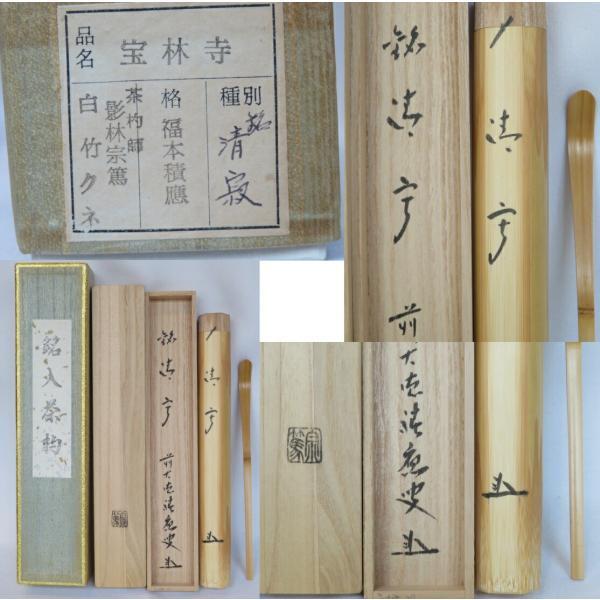 品名
宝林寺
種別
銘 清寂
格
福本積應
茶杓師
影林宗篤
白竹クネ
銘清寂
清寂
銘入茶杓
銘清寂
前大徳積應叟
清寂
宗篤
前大徳積應叟